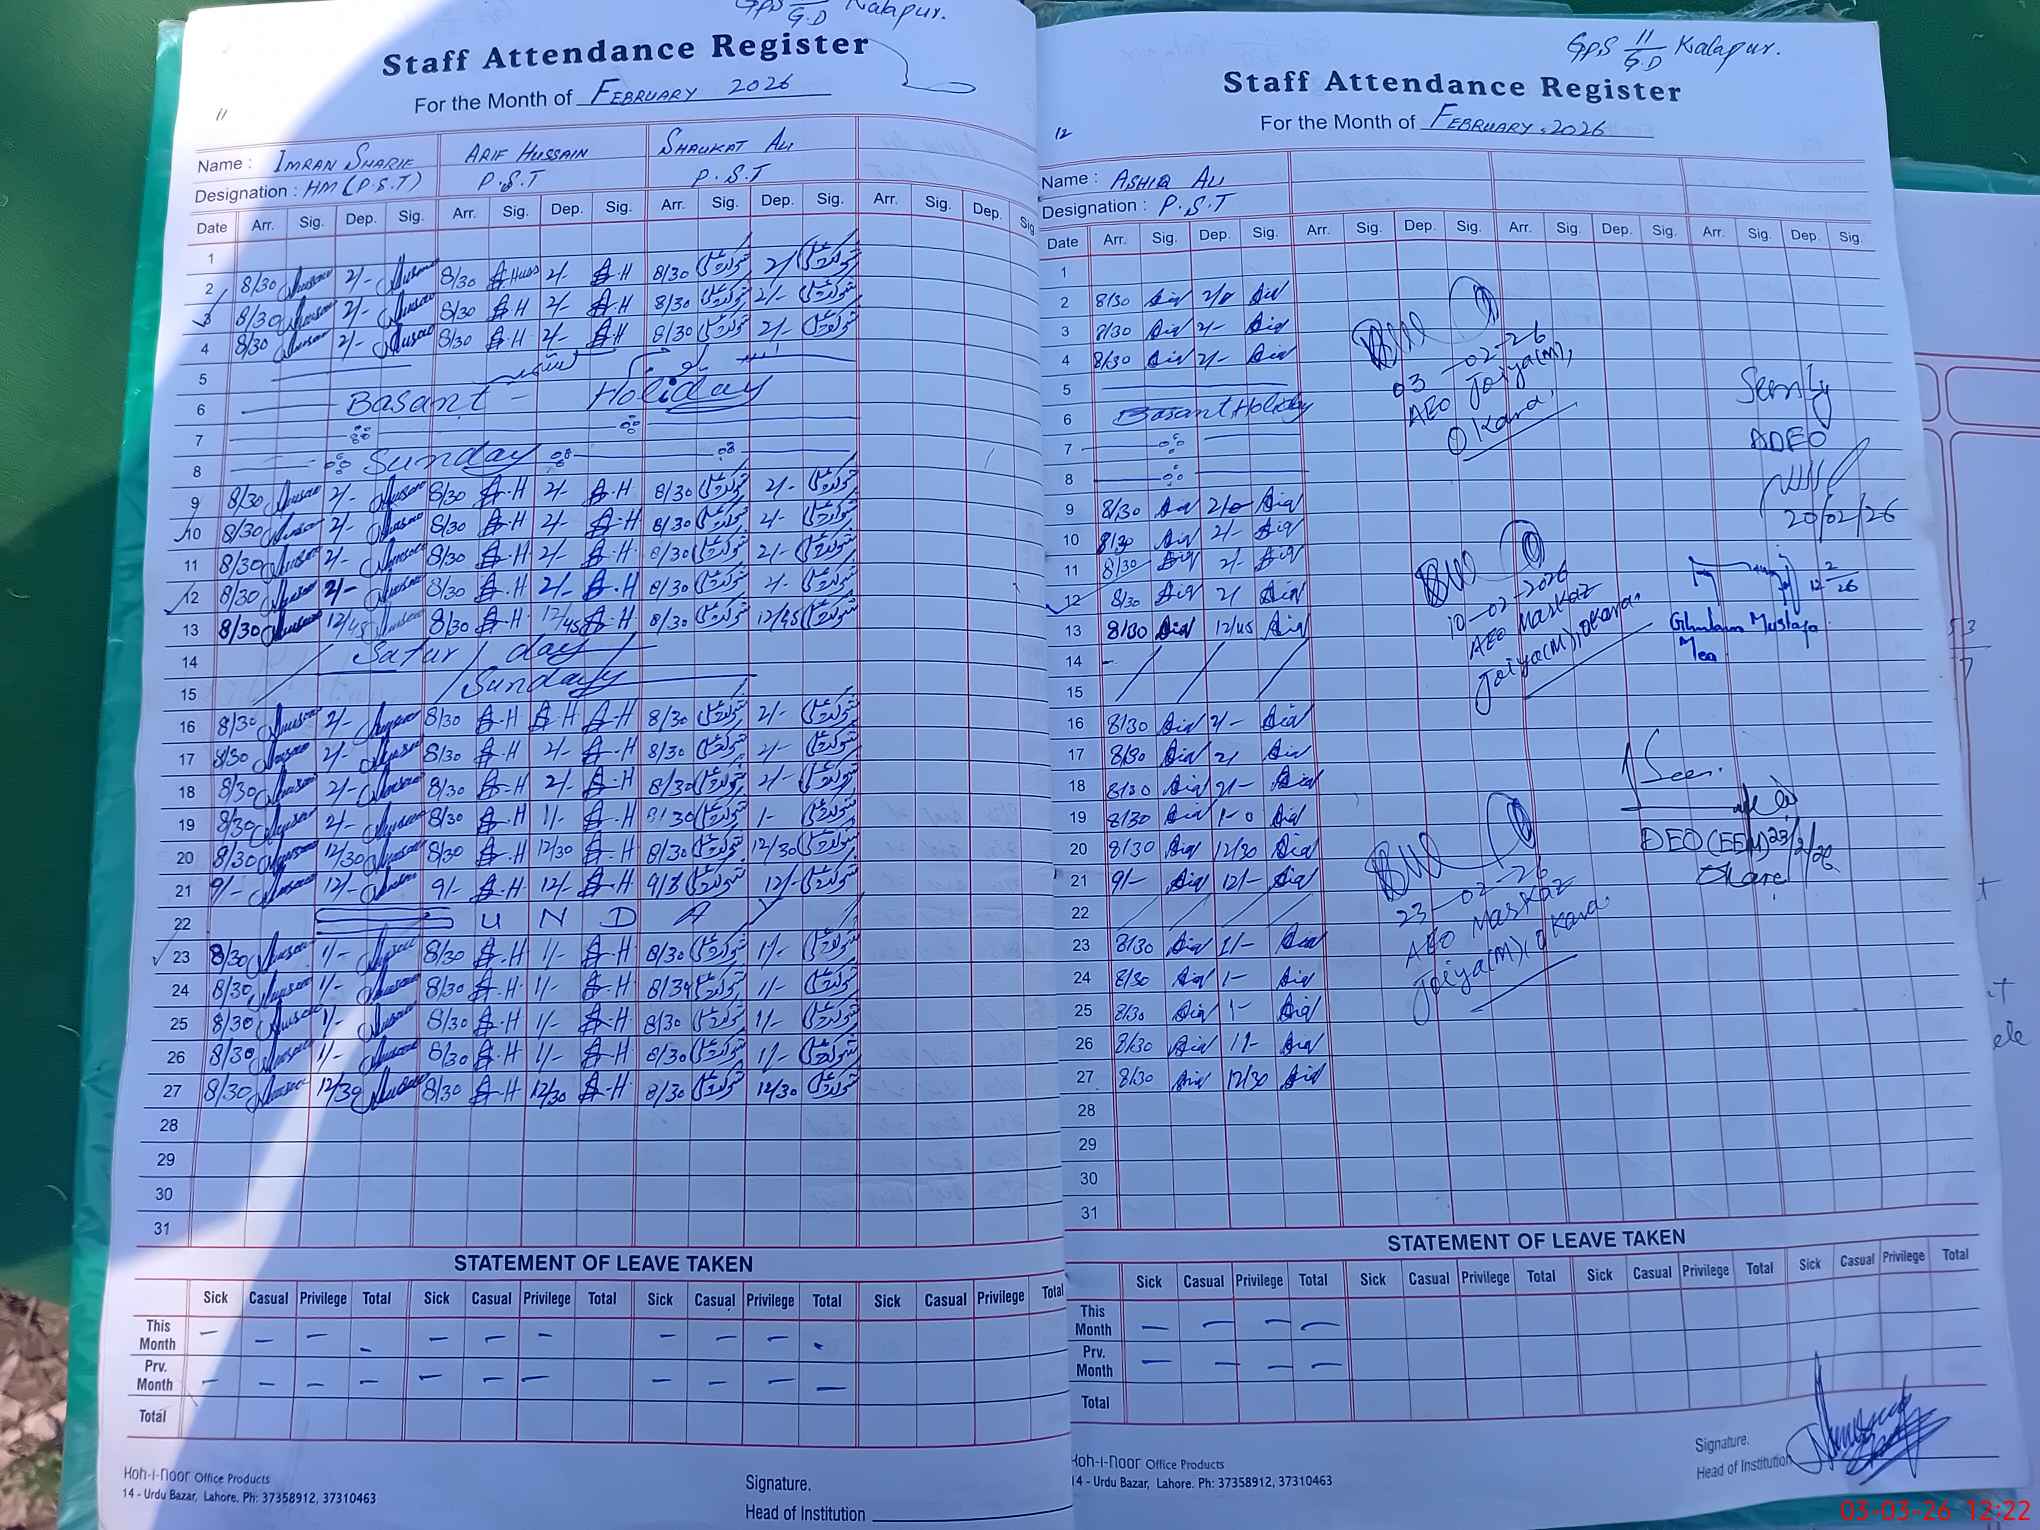 GPS 11/G.D Kalapur.
Staff Attendance Register
For the Month of FEBRUARY 2026
11
Name : IMRAN SHARIF ARIF HUSSAIN SHAUKAT ALI
Designation : HM (P.S.T) P.S.T P.S.T
Date Arr. Sig. Dep. Sig. Arr. Sig. Dep. Sig. Arr. Sig. Dep. Sig. Arr. Sig. Dep. Sig
1
2 8/30 2/- 8/30 A Huss 2/- A.H 8/30 شوکت علی 2/ شوکت علی
3 8/30 2/- 8/30 A.H 2/- A.H 8/30 شوکت علی 2/- شوکت علی
4 8/30 2/- 8/30 A.H 2/- A.H 8/30 شوکت علی 2/- شوکت علی
5
6 Basant - Holiday
7
8 Sunday
9 8/30 2/- 8/30 A.H 2/- A.H 8/30 شوکت علی 2/- شوکت علی
10 8/30 2/- 8/30 A.H 2/- A.H 8/30 شوکت علی 2/- شوکت علی
11 8/30 2/- 8/30 A.H 2/- A.H 8/30 شوکت علی 2/- شوکت علی
12 8/30 2/- 8/30 A.H 2/- A.H 8/30 شوکت علی 2/- شوکت علی
13 8/30 12/45 8/30 A.H 12/45 A.H 8/30 شوکت علی 12/45 شوکت علی
14 Satur day
15 Sunday
16 8/30 2/- 8/30 A.H A.H A.H 8/30 شوکت علی 2/- شوکت علی
17 8/30 2/- 8/30 A.H 2/- A.H 8/30 شوکت علی 2/- شوکت علی
18 8/30 2/- 8/30 A.H 2/- A.H 8/30 شوکت علی 2/- شوکت علی
19 8/30 2/- 8/30 A.H 1/- A.H 8/30 شوکت علی 1- شوکت علی
20 8/30 12/30 8/30 A.H 12/30 A.H 8/30 شوکت علی 12/30 شوکت علی
21 9/- 12/- 9/- A.H 12/- A.H شوکت علی 12/- شوکت علی
22 S U N D A Y
23 8/30 1/- 8/30 A.H 1/- A.H 8/30 شوکت علی 1/- شوکت علی
24 8/30 1/- 8/30 A.H 1/- A.H شوکت علی 1/- شوکت علی
25 8/30 1/- 8/30 A.H 1/- A.H 8/30 شوکت علی 1/- شوکت علی
26 8/30 1/- 8/30 A.H 1/- A.H 8/30 شوکت علی 1/- شوکت علی
27 8/30 12/30 8/30 A.H 12/30 A.H 8/30 شوکت علی 12/30 شوکت علی
28
29
30
31
STATEMENT OF LEAVE TAKEN
Sick Casual Privilege Total Sick Casual Privilege Total Sick Casual Privilege Total Sick Casual Privilege Total
This Month - - - - - - - - - - -
Prv. Month - - - - - - - - - - -
Total
Koh-i-noor Office Products
14 - Urdu Bazar, Lahore. Ph: 37358912, 37310463
Signature.
Head of Institution
GPS 11/G.D Kalapur.
Staff Attendance Register
For the Month of FEBRUARY. 2026
12
Name : ASHIQ ALI
Designation : P.S.T
Date Arr. Sig. Dep. Sig. Arr. Sig. Dep. Sig. Arr. Sig. Dep. Sig. Arr. Sig. Dep. Sig.
1
2 8/30 2/-
3 8/30 2/-
4 8/30 2/-
5
6 Basant Holiday
7
8
9 8/30 2/-
10 8/30 2/-
11 8/30 2/-
12 8/30 2/
13 8/30 12/45
14 -
15
16 8/30 2/-
17 8/30 2/
18 8/30 2/-
19 8/30 1-0
20 8/30 12/30
21 9/- 12/-
22
23 8/30 1/-
24 8/30 1-
25 8/30 1-
26 8/30 1/-
27 8/30 12/30
28
29
30
31
03-02-26
AEO Joiya(M),
Okara.
ADEO
20/02/26
10-02-2026
AEO Maskaz
Joiya(M), Okara.
12 2/26
Ghulam Mustafa
Mea
Seen.
DEO (EEM) 23/2/26
Okara
23-02-26
AEO Maskaz
Joiya(M), Okara.
STATEMENT OF LEAVE TAKEN
Sick Casual Privilege Total Sick Casual Privilege Total Sick Casual Privilege Total Sick Casual Privilege Total
This Month - - - -
Prv. Month - - - -
Total
Koh-i-noor Office Products
14 - Urdu Bazar, Lahore. Ph: 37358912, 37310463
Signature.
Head of Institution
03-03-26 12:22